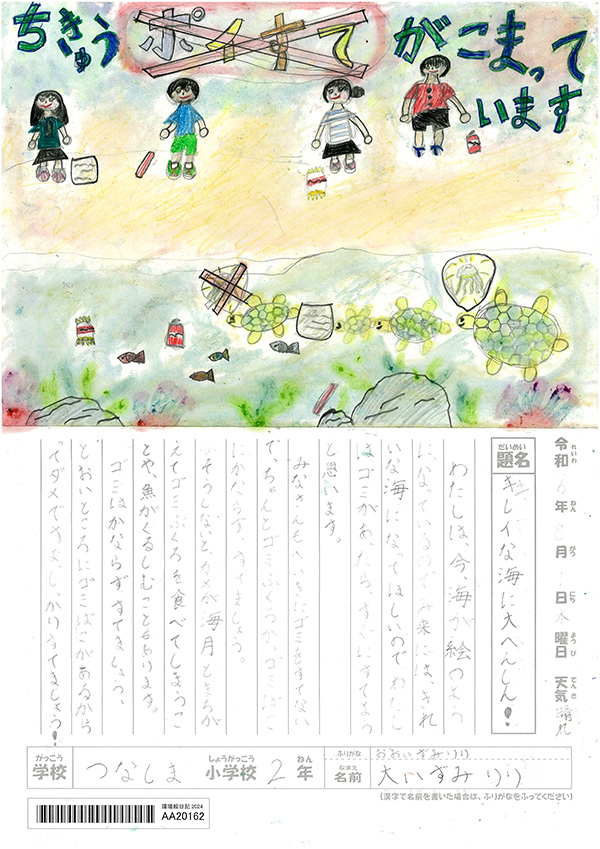 ちきゅう
ポイすて
がこまって
います
令和6年 月 日 木曜日 天気 晴れ
れいわ ねん がつ にち ようび てんき
だいめい
題名
キレイな海に大へんしん!
わたしは、今、海が絵のよう
になっているので、み来には、きれ
いな海になてほしいのでわたし
はゴミがあったら、すぐにすてよう
と思います。
みなさんも、 にゴミをすてない
で、ちゃんとゴミぶくろか、ゴミばこ
にかならず、すてましょう。
そうしないと、カメが海月とまちが
えてゴミぶくろを食べてしまうこ
とや、魚がくるしむこともあります。
ゴミはかならずすてましょう、
とおいところにゴミばこがあるから
ってダメですよ、しっかりすてましょう!
がっこう しょうがっこう ねん
学校 つなしま 小学校 2年
ふりがな おおいずみりり
なまえ
名前 大いずみりり
(漢字で名前を書いた場合は、ふりがなをふってください)
環境絵日記2024
AA20162